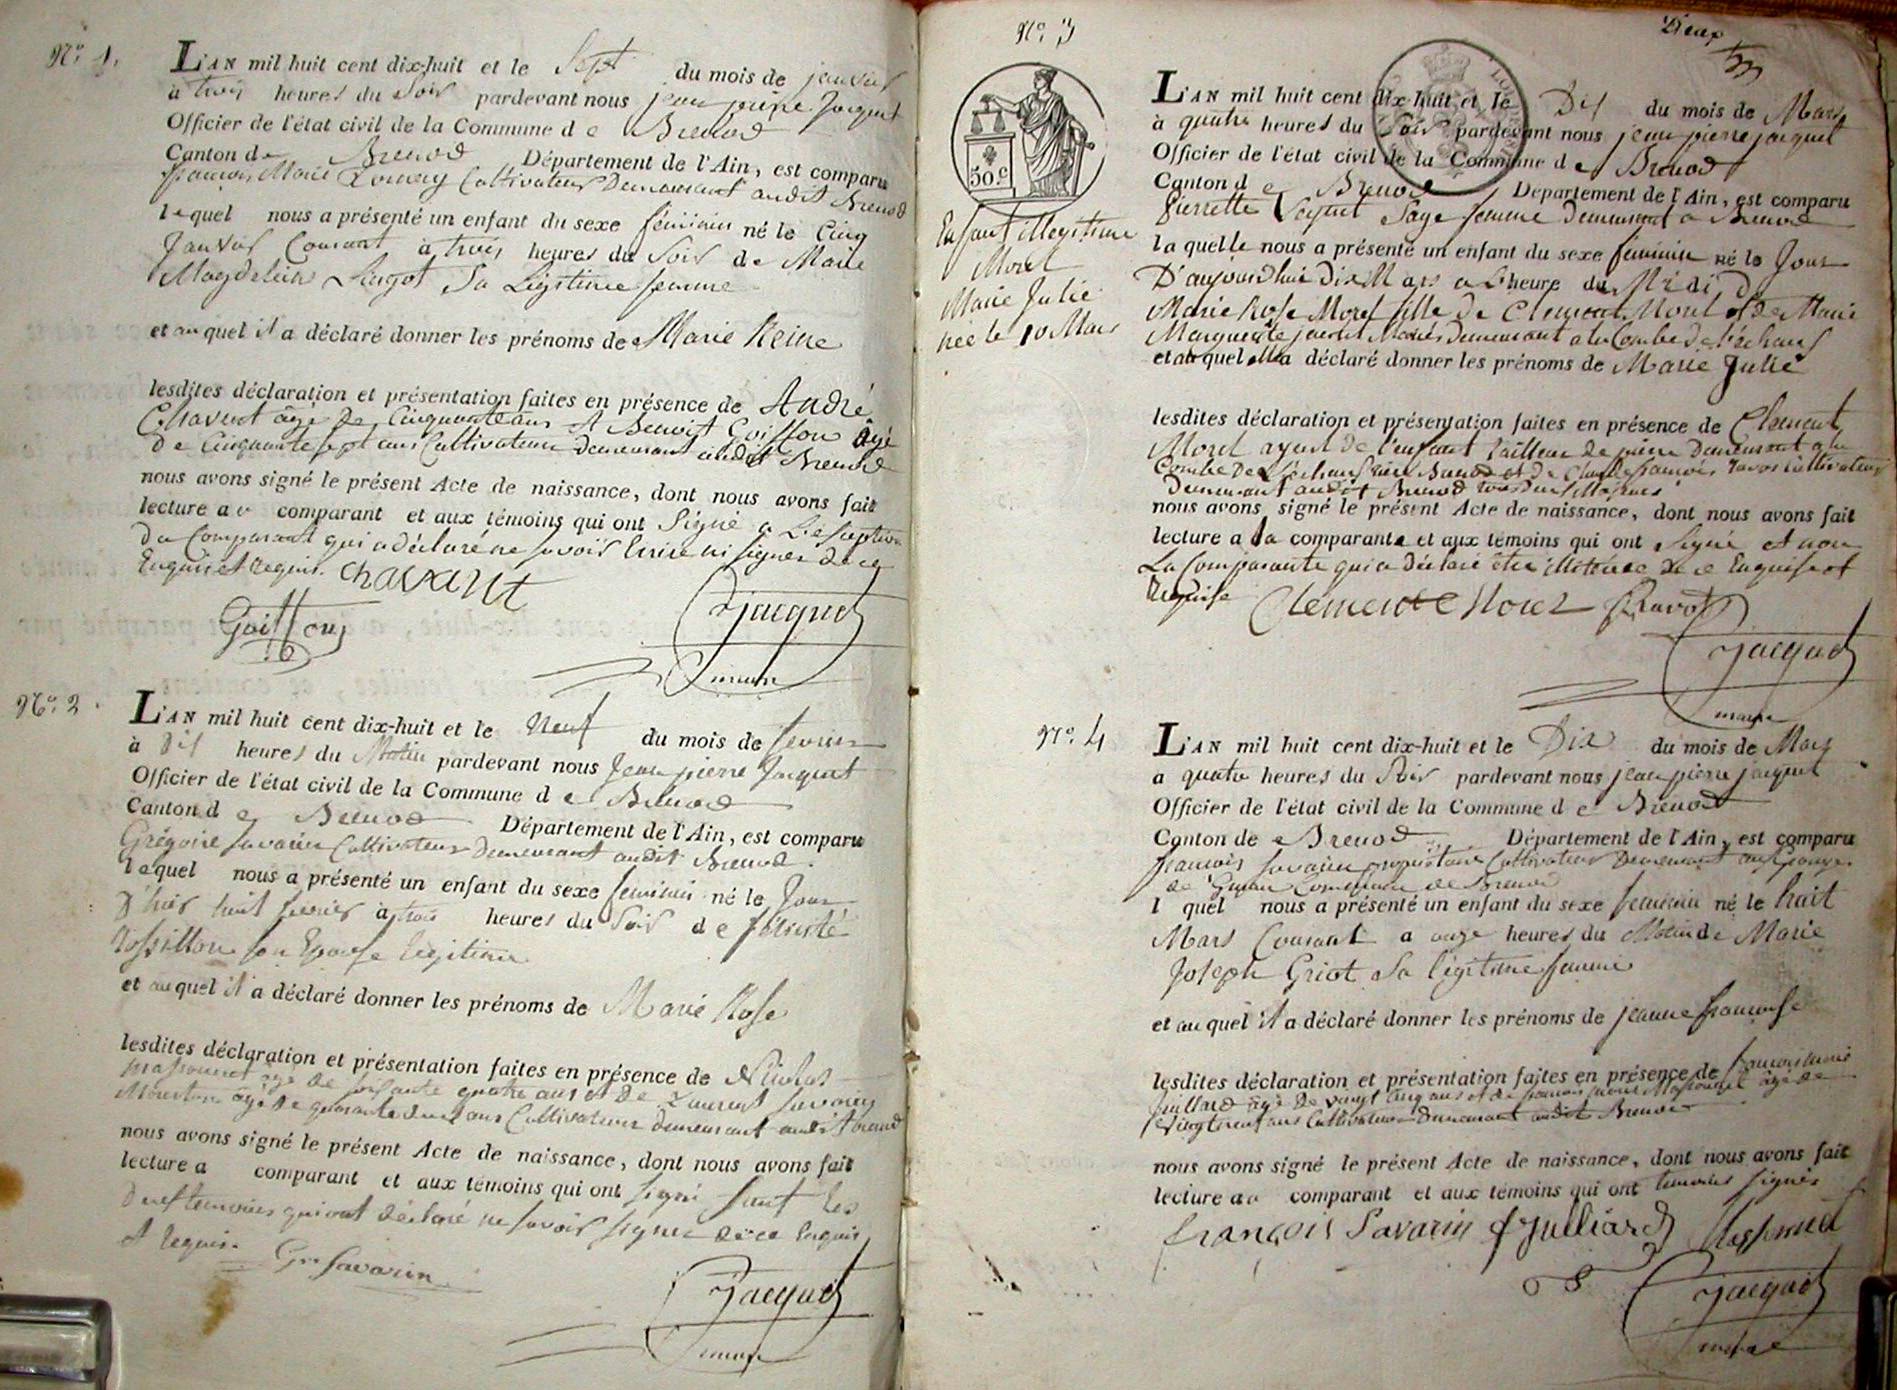 Nº 1.
L'AN mil huit cent dix-huit et le Sept du mois de janvier
à trois heures du Soir pardevant nous jean pierre Jacquet
Officier de l'état civil de la Commune de Brenod
Canton de Brenod Département de l'Ain, est comparu
françois Marie Cultivateur Demeurant audit Brenod
lequel nous a présenté un enfant du sexe féminin né le Cinq
Janvier Courant à trois heures du Soir de Marie
Magdeleine Sa Légitime femme
et auquel il a déclaré donner les prénoms de Marie Reine
lesdites déclaration et présentation faites en présence de André
Chavent âgé De Cinquante ans et Benoit Goiffon âgé
De Cinquante sept ans Cultivateurs demeurant audit Brenod
nous avons signé le présent Acte de naissance, dont nous avons fait
lecture au comparant et aux témoins qui ont Signé a L'exception
Du Comparant qui a déclaré ne savoir Ecrire ni signer de ce
Enquis et Requis. Chavant
Goiffon
Jacquet
maire
Nº 2.
L'AN mil huit cent dix-huit et le Neuf du mois de fevrier
à Dix heures du Matin pardevant nous Jean pierre Jacquet
Officier de l'état civil de la Commune de Brenod
Canton de Brenod Département de l'Ain, est comparu
Grégoire Savarin Cultivateur Demeurant audit Brenod.
lequel nous a présenté un enfant du sexe feminin né le Jour
D'hier huit fevrier à trois heures du Soir de félicité
son Epouse legitime
et auquel il a déclaré donner les prénoms de Marie Rose
lesdites déclaration et présentation faites en présence de Nicolas
âgé de soixante quatre ans et De Laurent Savarin
âgé de quarante deux ans Cultivateurs demeurant audit Brenod
nous avons signé le présent Acte de naissance, dont nous avons fait
lecture a comparant et aux témoins qui ont signé sauf les
Deux temoins qui ont déclaré ne savoir signer de ce Enquis
et Requis. Gre Savarin
Jacquet
maire
Nº 3
Deux
50 c
Enfant illegitime
Morel
Marie Julie
née le 10 Mars
L'AN mil huit cent dix-huit et le Dix du mois de Mars
à quatre heures du Soir pardevant nous jean pierre jacquet
Officier de l'état civil de la Commune de Brenod
Canton de Brenod Département de l'Ain, est comparu
Pierrette Sage femme Demeurant a Brenod
laquelle nous a présenté un enfant du sexe féminin né le Jour
D'aujourdhui dix Mars a heure du Midi De
Marie Rose Morel fille De Clement Morel et de Marie
Marguerite Mariés Demeurant a la Combe de
et auquel elle a déclaré donner les prénoms de Marie Julie
lesdites déclaration et présentation faites en présence de Clement
Morel ayeul de l'enfant tailleur de pierre Demeurant a la
Combe De Brenod et De Claude françois Ravot Cultivateur
Demeurant audit Brenod tous deux Majeurs
nous avons signé le présent Acte de naissance, dont nous avons fait
lecture a la comparante et aux témoins qui ont Signé et non
La Comparante qui a déclaré être illitérée de ce Enquise et
Requise Clemente Morel Ravot
Jacquet
maire
Nº 4
L'AN mil huit cent dix-huit et le Dix du mois de Mars
a quatre heures du Soir pardevant nous jean pierre jacquet
Officier de l'état civil de la Commune de Brenod
Canton de Brenod Département de l'Ain, est comparu
françois Savarin propriétaire Cultivateur Demeurant aux granges
de Commune de Brenod
l quel nous a présenté un enfant du sexe feminin né le huit
Mars Courant a onze heures du Matin de Marie
Joseph Griot Sa légitime femme
et auquel il a déclaré donner les prénoms de jeanne françoise
lesdites déclaration et présentation faites en présence de françois marie
Juillard âgé De vingt cinq ans et de françois marie Massonnet âgé de
Vingt neuf ans Cultivateurs Demeurant audit Brenod
nous avons signé le présent Acte de naissance, dont nous avons fait
lecture au comparant et aux témoins qui ont temoins signés
françois Savarin fJulliard Massonnet
Jacquet
maire